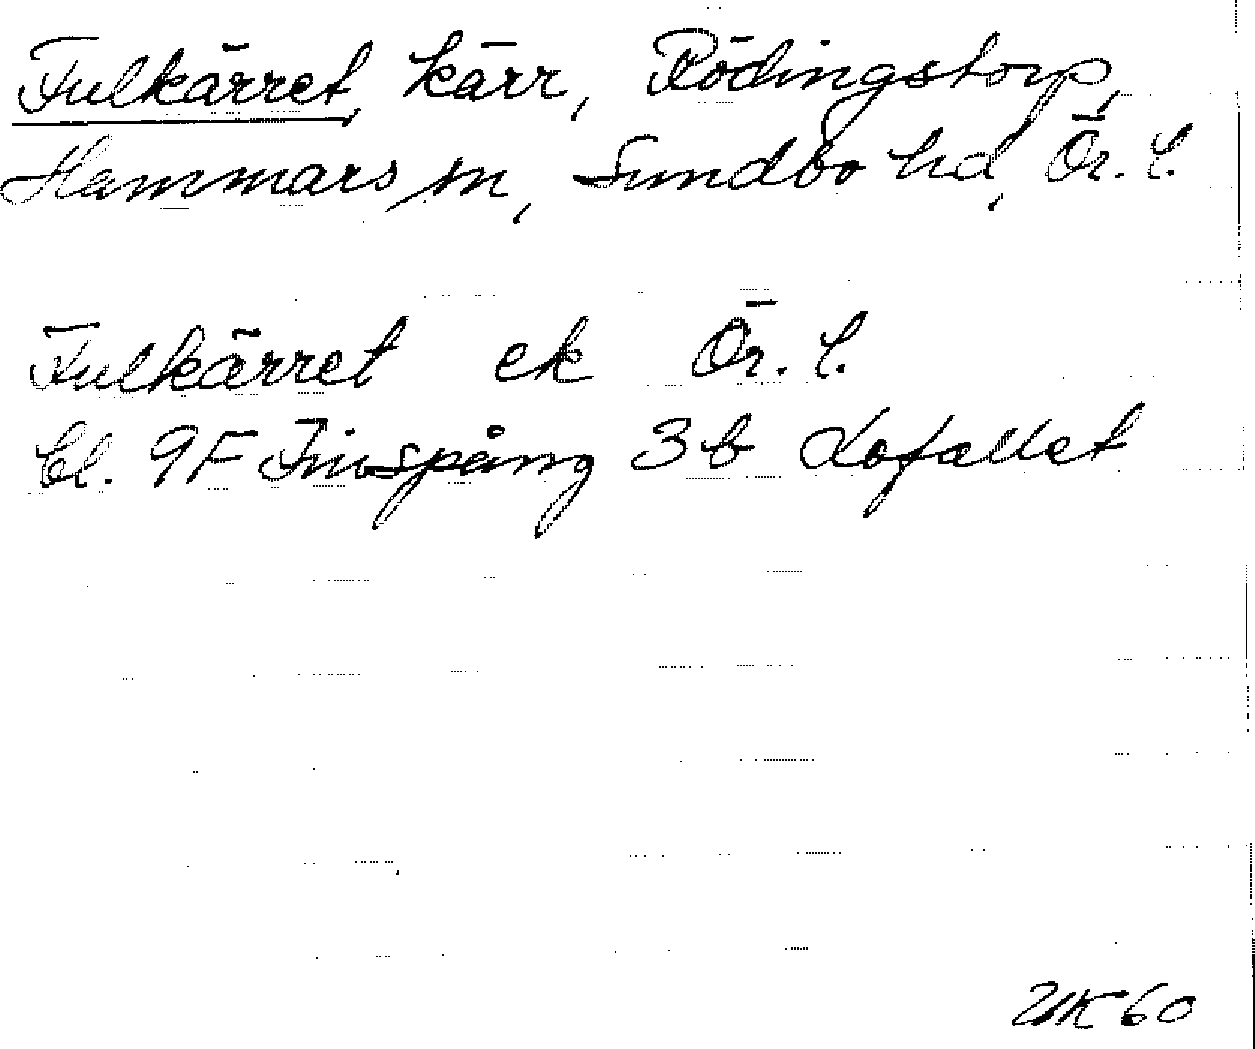 Fulkärret, kärr, Rödingstorp,
Hammars sn, Sundbo hd, Ör. l.
Fulkärret ek Ör. l.
bl. 9F Finspång 3b Lofallet
UK 60